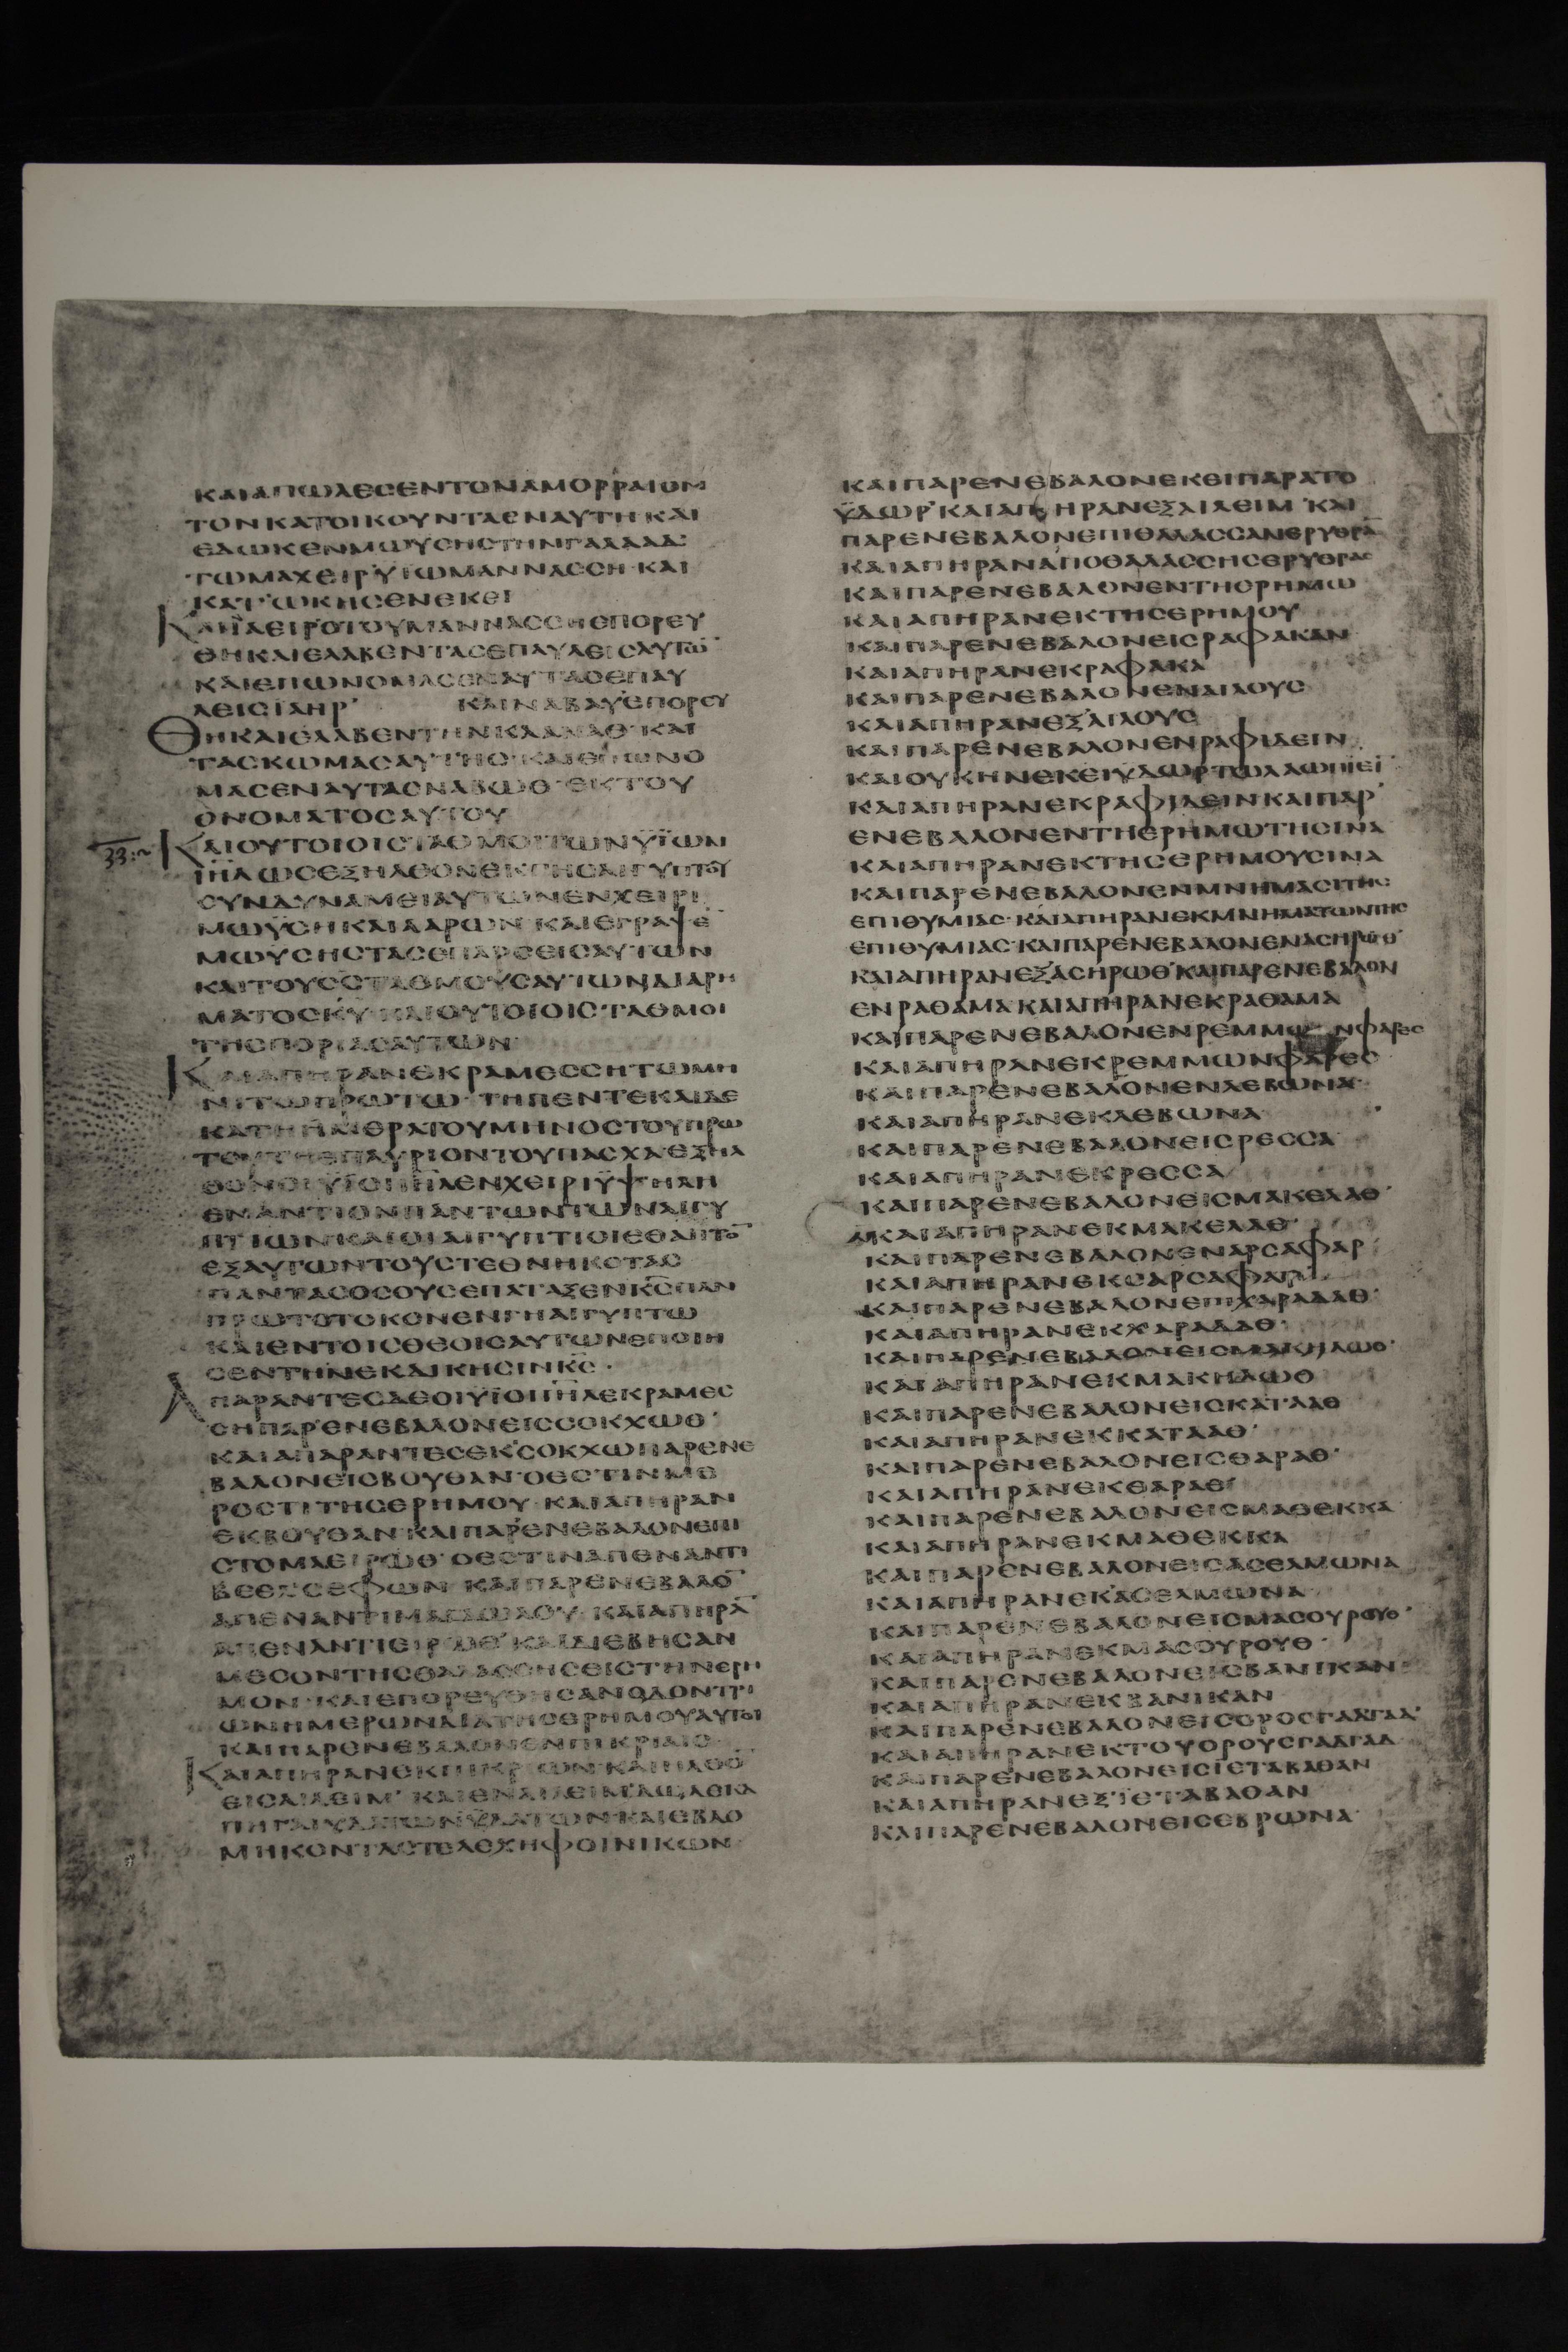 ΚΑΙΑΠΩΛΕϹΕΝΤΟΝΑΜΟΡΡΑΙΟΝ
ΤΟΝΚΑΤΟΙΚΟΥΝΤΑΕΝΑΥΤΗΚΑΙ
ΕΔΩΚΕΝΜΩΥϹΗϹΤΗΝΓΑΛΑΑΔ·
ΤΩΜΑΧΕΙΡΥΙΩΜΑΝΝΑϹϹΗ·ΚΑΙ
ΚΑΤΩΚΗϹΕΝΕΚΕΙ
ΚΑΙΙΑΕΙΡΟΤΟΥΜΑΝΝΑϹϹΗΕΠΟΡΕΥ
ΘΗΚΑΙΕΛΑΒΕΝΤΑϹΕΠΑΥΛΕΙϹΑΥΤΩ̅
ΚΑΙΕΠΩΝΟΜΑϹΕΝΑΥΤΑϹΕΠΑΥ
ΛΕΙϹΙΑΗΡ· ΚΑΙΝΑΒΑΥΕΠΟΡΕΥ
ΘΗΚΑΙΕΛΑΒΕΝΤΗΝΚΑΑΝΑΘ·ΚΑΙ
ΤΑϹΚΩΜΑϹΑΥΤΗϹ·ΚΑΙΕΠΩΝΟ
ΜΑϹΕΝΑΥΤΑϹΝΑΒΩΘ·ΕΚΤΟΥ
ΟΝΟΜΑΤΟϹΑΥΤΟΥ
33:~ ΚΑΙΟΥΤΟΙΟΙϹΤΑΘΜΟΙΤΩΝΥΪΩΝ
ΙΗ̅Λ̅ΩϹΕΞΗΛΘΟΝΕΚΓΗϹΑΙΓΥΠΤΟΥ
ϹΥΝΔΥΝΑΜΕΙΑΥΤΩΝΕΝΧΕΙΡΙ
ΜΩΥϹΗΚΑΙΑΑΡΩΝ·ΚΑΙΕΓΡΑΨΕ̅
ΜΩΥϹΗϹΤΑϹΕΠΑΡϹΕΙϹΑΥΤΩΝ
ΚΑΙΤΟΥϹϹΤΑΘΜΟΥϹΑΥΤΩΝΔΙΑΡΗ
ΜΑΤΟϹΚ̅Υ̅·ΚΑΙΟΥΤΟΙΟΙϹΤΑΘΜΟΙ
ΤΗϹΠΟΡΙΑϹΑΥΤΩΝ·
ΚΑΙΑΠΗΡΑΝΕΚΡΑΜΕϹϹΗΤΩΜΗ
ΝΙΤΩΠΡΩΤΩ·ΤΗΠΕΝΤΕΚΑΙΔΕ
ΚΑΤΗΗΜΕΡΑΤΟΥΜΗΝΟϹΤΟΥΠΡΩ
ΤΟΥΤΗΕΠΑΥΡΙΟΝΤΟΥΠΑϹΧΑΕΞΗΛ
ΘΟΝΟΙΥΪΟΙΙΗ̅Λ̅ΕΝΧΕΙΡΙΥΨΗΛΗ
ΕΝΑΝΤΙΟΝΠΑΝΤΩΝΤΩΝΑΙΓΥ
ΠΤΙΩΝΚΑΙΟΙΑΙΓΥΠΤΙΟΙΕΘΑΠΤΟ̅
ΕΞΑΥΤΩΝΤΟΥϹΤΕΘΝΗΚΟΤΑϹ
ΠΑΝΤΑϹΟϹΟΥϹΕΠΑΤΑΞΕΝΚ̅Ϲ̅ΠΑΝ
ΠΡΩΤΟΤΟΚΟΝΕΝΓΗΑΙΓΥΠΤΩ
ΚΑΙΕΝΤΟΙϹΘΕΟΙϹΑΥΤΩΝΕΠΟΙΗ
ϹΕΝΤΗΝΕΚΔΙΚΗϹΙΝΚ̅Ϲ̅·
ΑΠΑΡΑΝΤΕϹΔΕΟΙΥΪΟΙΙΗ̅Λ̅ΕΚΡΑΜΕϹ
ϹΗΠΑΡΕΝΕΒΑΛΟΝΕΙϹϹΟΚΧΩΘ·
ΚΑΙΑΠΑΡΑΝΤΕϹΕΚϹΟΚΧΩΠΑΡΕΝΕ
ΒΑΛΟΝΕΙϹΒΟΥΘΑΝ·ΟΕϹΤΙΝΜΕ
ΡΟϹΤΙΤΗϹΕΡΗΜΟΥ·ΚΑΙΑΠΗΡΑΝ
ΕΚΒΟΥΘΑΝ·ΚΑΙΠΑΡΕΝΕΒΑΛΟΝΕΠΙ
ϹΤΟΜΑΕΙΡΩΘ·ΟΕϹΤΙΝΑΠΕΝΑΝΤΙ
ΒΕΕΛϹΕΦΩΝ·ΚΑΙΠΑΡΕΝΕΒΑΛΟ̅
ΑΠΕΝΑΝΤΙΜΑΓΔΩΛΟΥ·ΚΑΙΑΠΗΡΑ̅
ΑΠΕΝΑΝΤΙΕΙΡΩΘ·ΚΑΙΔΙΕΒΗϹΑΝ
ΜΕϹΟΝΤΗϹΘΑΛΑϹϹΗϹΕΙϹΤΗΝΕΡΗ
ΜΟΝ·ΚΑΙΕΠΟΡΕΥΘΗϹΑΝΟΔΟΝΤΡΙ
ΩΝΗΜΕΡΩΝΔΙΑΤΗϹΕΡΗΜΟΥΑΥΤΟΙ
ΚΑΙΠΑΡΕΝΕΒΑΛΟΝΕΝΠΙΚΡΙΑΙϹ
ΚΑΙΑΠΗΡΑΝΕΚΠΙΚΡΙΩΝ·ΚΑΙΗΛΘΟ̅
ΕΙϹΑΙΛΕΙΜ·ΚΑΙΕΝΑΙΛΕΙΜΔΩΔΕΚΑ
ΠΗΓΑΙΥΔΑΤΩΝΚΑΙΕΒΔΟ
ΜΗΚΟΝΤΑϹΤΕΛΕΧΗΦΟΙΝΙΚΩΝ·
ΚΑΙΠΑΡΕΝΕΒΑΛΟΝΕΚΕΙΠΑΡΑΤΟ
ΫΔΩΡ·ΚΑΙΑΠΗΡΑΝΕΞΑΙΛΕΙΜ·ΚΑΙ
ΠΑΡΕΝΕΒΑΛΟΝΕΠΙΘΑΛΑϹϹΑΝΕΡΥΘΡΑ̅
ΚΑΙΑΠΗΡΑΝΑΠΟΘΑΛΑϹϹΗϹΕΡΥΘΡΑϹ
ΚΑΙΠΑΡΕΝΕΒΑΛΟΝΕΝΤΗΕΡΗΜΩ
ΚΑΙΑΠΗΡΑΝΕΚΤΗϹΕΡΗΜΟΥ
ΚΑΙΠΑΡΕΝΕΒΑΛΟΝΕΙϹΡΑΦΑΚΑΝ
ΚΑΙΑΠΗΡΑΝΕΚΡΑΦΑΚΑ
ΚΑΙΠΑΡΕΝΕΒΑΛΟΝΕΝΑΙΛΟΥϹ
ΚΑΙΑΠΗΡΑΝΕΞΑΙΛΟΥϹ
ΚΑΙΠΑΡΕΝΕΒΑΛΟΝΕΝΡΑΦΙΔΕΙΝ
ΚΑΙΟΥΚΗΝΕΚΕΙΥΔΩΡΤΩΛΑΩΠΙΕΙ̅
ΚΑΙΑΠΗΡΑΝΕΚΡΑΦΙΔΕΙΝΚΑΙΠΑΡ
ΕΝΕΒΑΛΟΝΕΝΤΗΕΡΗΜΩΤΗϹΙΝΑ
ΚΑΙΑΠΗΡΑΝΕΚΤΗϹΕΡΗΜΟΥϹΙΝΑ
ΚΑΙΠΑΡΕΝΕΒΑΛΟΝΕΝΜΝΗΜΑϹΙΤΗϹ
ΕΠΙΘΥΜΙΑϹ·ΚΑΙΑΠΗΡΑΝΕΚΜΝΗΜΑΤΩΝΤΗϹ
ΕΠΙΘΥΜΙΑϹ·ΚΑΙΠΑΡΕΝΕΒΑΛΟΝΕΝΑϹΗΡΩΘ·
ΚΑΙΑΠΗΡΑΝΕΞΑϹΗΡΩΘ·ΚΑΙΠΑΡΕΝΕΒΑΛΟΝ
ΕΝΡΑΘΑΜΑΚΑΙΑΠΗΡΑΝΕΚΡΑΘΑΜΑ
ΚΑΙΠΑΡΕΝΕΒΑΛΟΝΕΝΡΕΜΜΩΝΦΑΡΕϹ
ΚΑΙΑΠΗΡΑΝΕΚΡΕΜΜΩΝΦΑΡΕϹ
ΚΑΙΠΑΡΕΝΕΒΑΛΟΝΕΝΛΕΒΩΝΑ·
ΚΑΙΑΠΗΡΑΝΕΚΛΕΒΩΝΑ
ΚΑΙΠΑΡΕΝΕΒΑΛΟΝΕΙϹΡΕϹϹΑ
ΚΑΙΑΠΗΡΑΝΕΚΡΕϹϹΑ
ΚΑΙΠΑΡΕΝΕΒΑΛΟΝΕΙϹΜΑΚΕΛΑΘ·
ΚΑΙΑΠΗΡΑΝΕΚΜΑΚΕΛΑΘ·
ΚΑΙΠΑΡΕΝΕΒΑΛΟΝΕΝΑΡϹΑΦΑΡ·
ΚΑΙΑΠΗΡΑΝΕΚϹΑΡϹΑΦΑΡ
ΚΑΙΠΑΡΕΝΕΒΑΛΟΝΕΠΙΧΑΡΑΔΑΘ·
ΚΑΙΑΠΗΡΑΝΕΚΧΑΡΑΔΑΘ·
ΚΑΙΠΑΡΕΝΕΒΑΛΟΝΕΙϹΜΑΚΗΔΩΘ·
ΚΑΙΑΠΗΡΑΝΕΚΜΑΚΗΔΩΘ
ΚΑΙΠΑΡΕΝΕΒΑΛΟΝΕΙϹΚΑΤΑΑΘ
ΚΑΙΑΠΗΡΑΝΕΚΚΑΤΑΑΘ·
ΚΑΙΠΑΡΕΝΕΒΑΛΟΝΕΙϹΘΑΡΑΘ·
ΚΑΙΑΠΗΡΑΝΕΚΘΑΡΑΘ
ΚΑΙΠΑΡΕΝΕΒΑΛΟΝΕΙϹΜΑΘΕΚΚΑ
ΚΑΙΑΠΗΡΑΝΕΚΜΑΘΕΚΚΑ
ΚΑΙΠΑΡΕΝΕΒΑΛΟΝΕΙϹΑϹΕΛΜΩΝΑ
ΚΑΙΑΠΗΡΑΝΕΚΑϹΕΛΜΩΝΑ
ΚΑΙΠΑΡΕΝΕΒΑΛΟΝΕΙϹΜΑϹΟΥΡΟΥΘ·
ΚΑΙΑΠΗΡΑΝΕΚΜΑϹΟΥΡΟΥΘ·
ΚΑΙΠΑΡΕΝΕΒΑΛΟΝΕΙϹΒΑΝΙΚΑΝ·
ΚΑΙΑΠΗΡΑΝΕΚΒΑΝΙΚΑΝ
ΚΑΙΠΑΡΕΝΕΒΑΛΟΝΕΙϹΟΡΟϹΓΑΔΓΑΔ·
ΚΑΙΑΠΗΡΑΝΕΚΤΟΥΟΡΟΥϹΓΑΔΓΑΔ
ΚΑΙΠΑΡΕΝΕΒΑΛΟΝΕΙϹΙΕΤΑΒΑΘΑΝ
ΚΑΙΑΠΗΡΑΝΕΞΪΕΤΑΒΑΘΑΝ
ΚΑΙΠΑΡΕΝΕΒΑΛΟΝΕΙϹΕΒΡΩΝΑ·